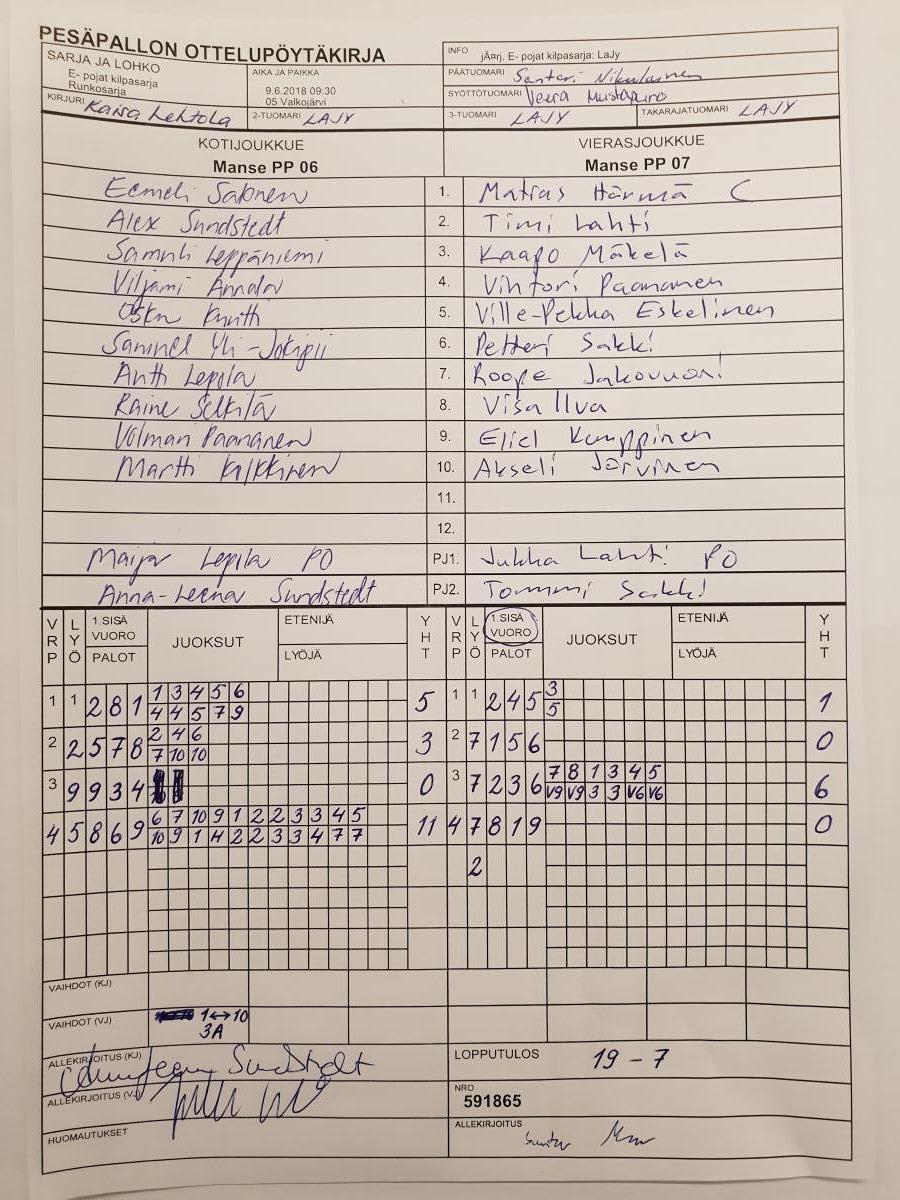 PESÄPALLON OTTELUPÖYTÄKIRJA
SARJA JA LOHKO
E- pojat kilpasarja
Runkosarja
AIKA JA PAIKKA
9.6.2018 09:30
05 Valkojärvi
INFO jÃ¤rj. E- pojat kilpasarja: LaJy
PÄÄTUOMARI Santeri Nikulainen
SYÖTTÖTUOMARI Veera Mustapuro
KIRJURI Kaisa Lehtola
2-TUOMARI LAJY
3-TUOMARI LAJY
TAKARAJATUOMARI LAJY
KOTIJOUKKUE VIERASJOUKKUE
Manse PP 06 Manse PP 07
Eemeli Salonen 1. Matias Härmä C
Alex Sundstedt 2. Timi Lahti
Samuli Leppäniemi 3. Kaapo Mäkelä
Viljami Annala 4. Vihtori Paananen
5. Ville-Pekka Eskelinen
Samuel Yli-Jokipii 6. Petteri Sakki
Antti Lepola 7. Roope Jakovuori
Raine Selkilä 8. Visa Ilva
Volmari Paananen 9. Eliel Kumppinen
Martti 10. Akseli Järvinen
11.
12.
Maija Lepola PO PJ1. Jukka Lahti PO
Anna-Leena Sundstedt PJ2. Tommi Sakki
VRP LYÖ 1.SISÄ VUORO PALOT JUOKSUT ETENIJÄ LYÖJÄ YHT VRP LYÖ 1.SISÄ VUORO PALOT JUOKSUT ETENIJÄ LYÖJÄ YHT
1 1 2 8 1 1 3 4 5 6 5 1 1 2 4 5 3 1
4 4 5 7 9 5
2 2 5 7 8 2 4 6 3 2 7 1 5 6 0
7 10 10
3 9 9 3 4 0 3 7 2 3 6 7 8 1 3 4 5 6
V9 V9 3 3 V6 V6
4 5 8 6 9 6 7 10 9 1 2 2 3 3 4 5 11 4 7 8 1 9 0
10 9 1 4 2 2 3 3 4 7 7
2
VAIHDOT (KJ)
VAIHDOT (VJ) 1↔10
3A
ALLEKIRJOITUS (KJ) Sundstedt
LOPPUTULOS 19 - 7
ALLEKIRJOITUS (VJ)
NRO
591865
HUOMAUTUKSET
ALLEKIRJOITUS